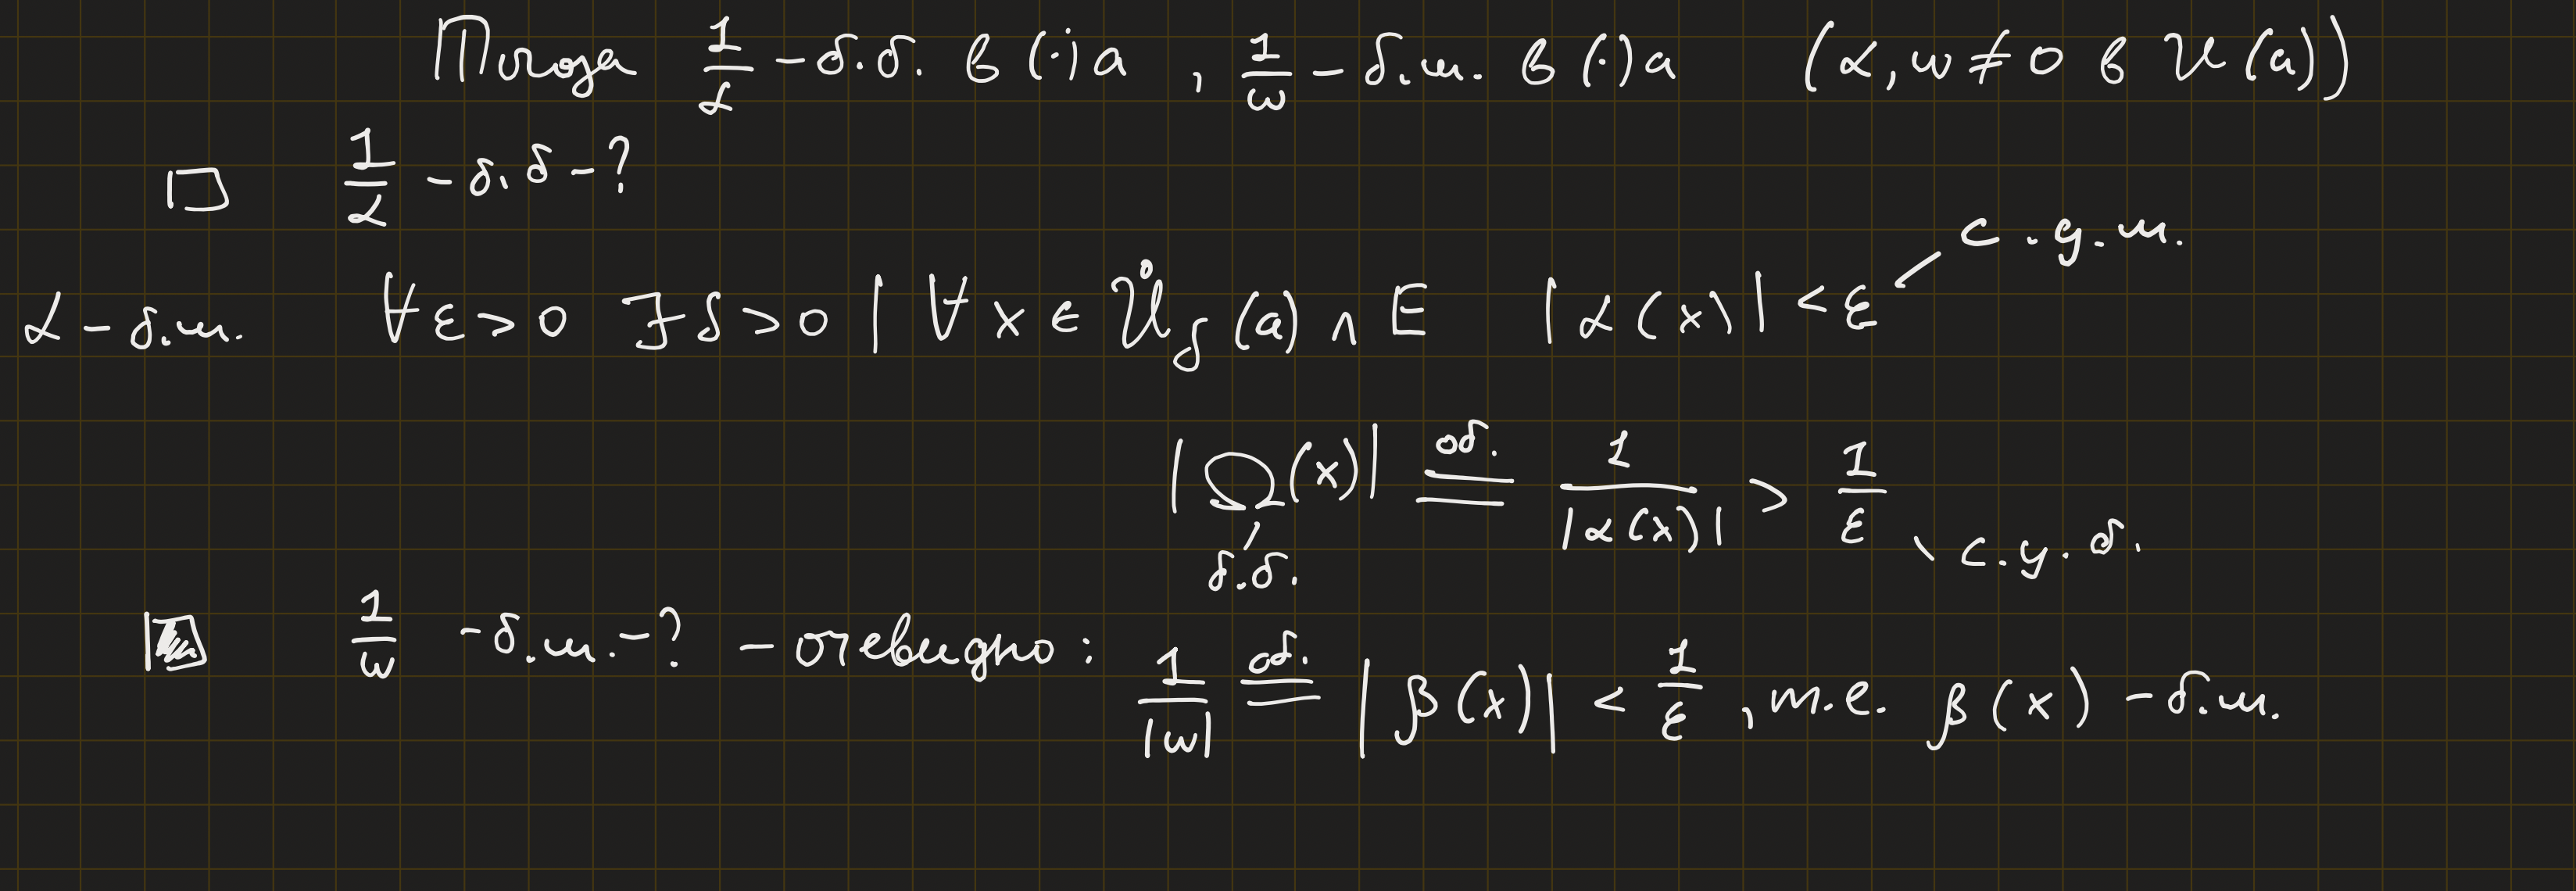 Тогда 1/α - б.б. в (·) a , 1/ω - б.м. в (·) a (α, ω ≠ 0 в U(a))
□ 1/α - б.б - ?
с.у.м.
α - б.м. ∀ε > 0 ∃δ > 0 | ∀x ∈ Ů_δ(a) ∩ E |α(x)| < ε
|Ω(x)| об. = 1/|α(x)| > 1/ε
б.б. с.у.б.
■ 1/ω - б.м. - ? - очевидно: 1/|ω| об. = |β(x)| < 1/ε, т.е. β(x) - б.м.